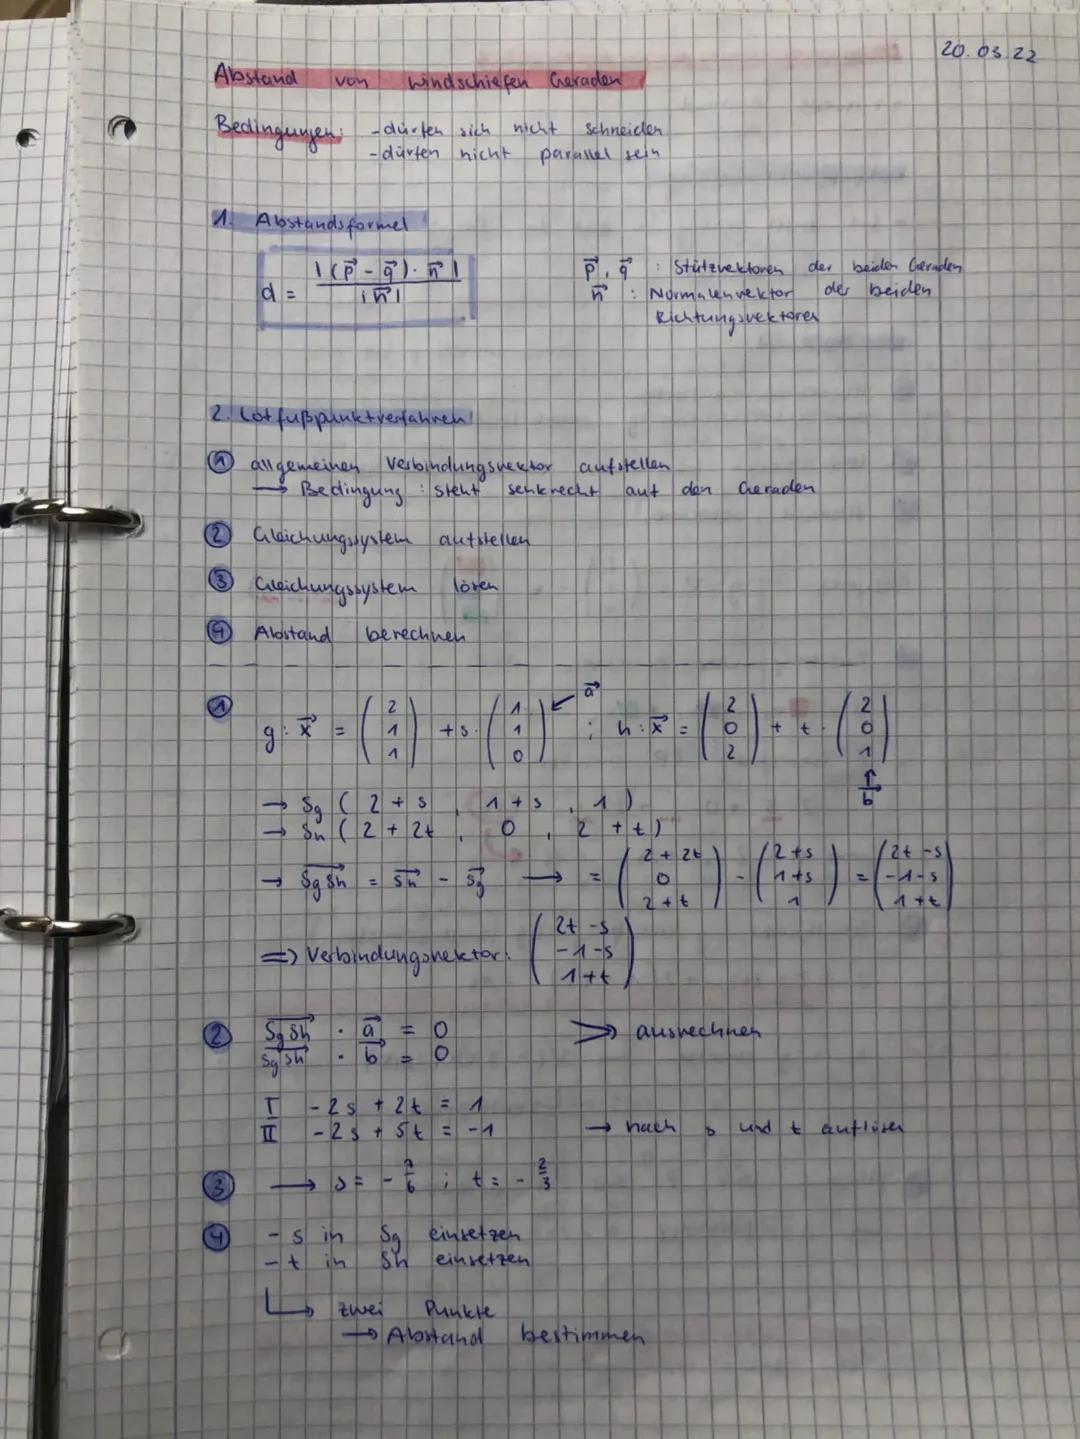 20.03.22
Abstand von windschiefen Geraden
Bedingungen: - dürfen sich nicht schneiden
- dürfen nicht parallel sein
1. Abstandsformel
d = |(p⃗ - q⃗) · n⃗| / |n⃗|
p⃗, q⃗ : Stützvektoren der beiden Geraden
n⃗ : Normalenvektor der beiden
Richtungsvektoren
2. Lotfußpunktverfahren
① allgemeinen Verbindungsvektor aufstellen
→ Bedingung : steht senkrecht auf den Geraden
② Gleichungssystem aufstellen
③ Gleichungssystem lösen
④ Abstand berechnen
① g: x⃗ = (2 1 1) + s · (1 1 0) ← a⃗ ; h: x⃗ = (2 0 2) + t · (2 0 1) ↑ b⃗
→ Sg (2 + s, 1 + s, 1)
→ Sh (2 + 2t, 0, 2 + t)
→ SgSh = Sh - Sg → = (2 + 2t 0 2 + t) - (2 + s 1 + s 1) = (2t - s -1 - s 1 + t)
=> Verbindungsvektor: (2t - s -1 - s 1 + t)
② SgSh · a⃗ = 0 > ausrechnen
SgSh · b⃗ = 0
I -2s + 2t = 1
II -2s + 5t = -1 → nach s und t auflösen
③ → s = -7/6 ; t = -2/3
④ - s in Sg einsetzen
- t in Sh einsetzen
↳ zwei Punkte
→ Abstand bestimmen